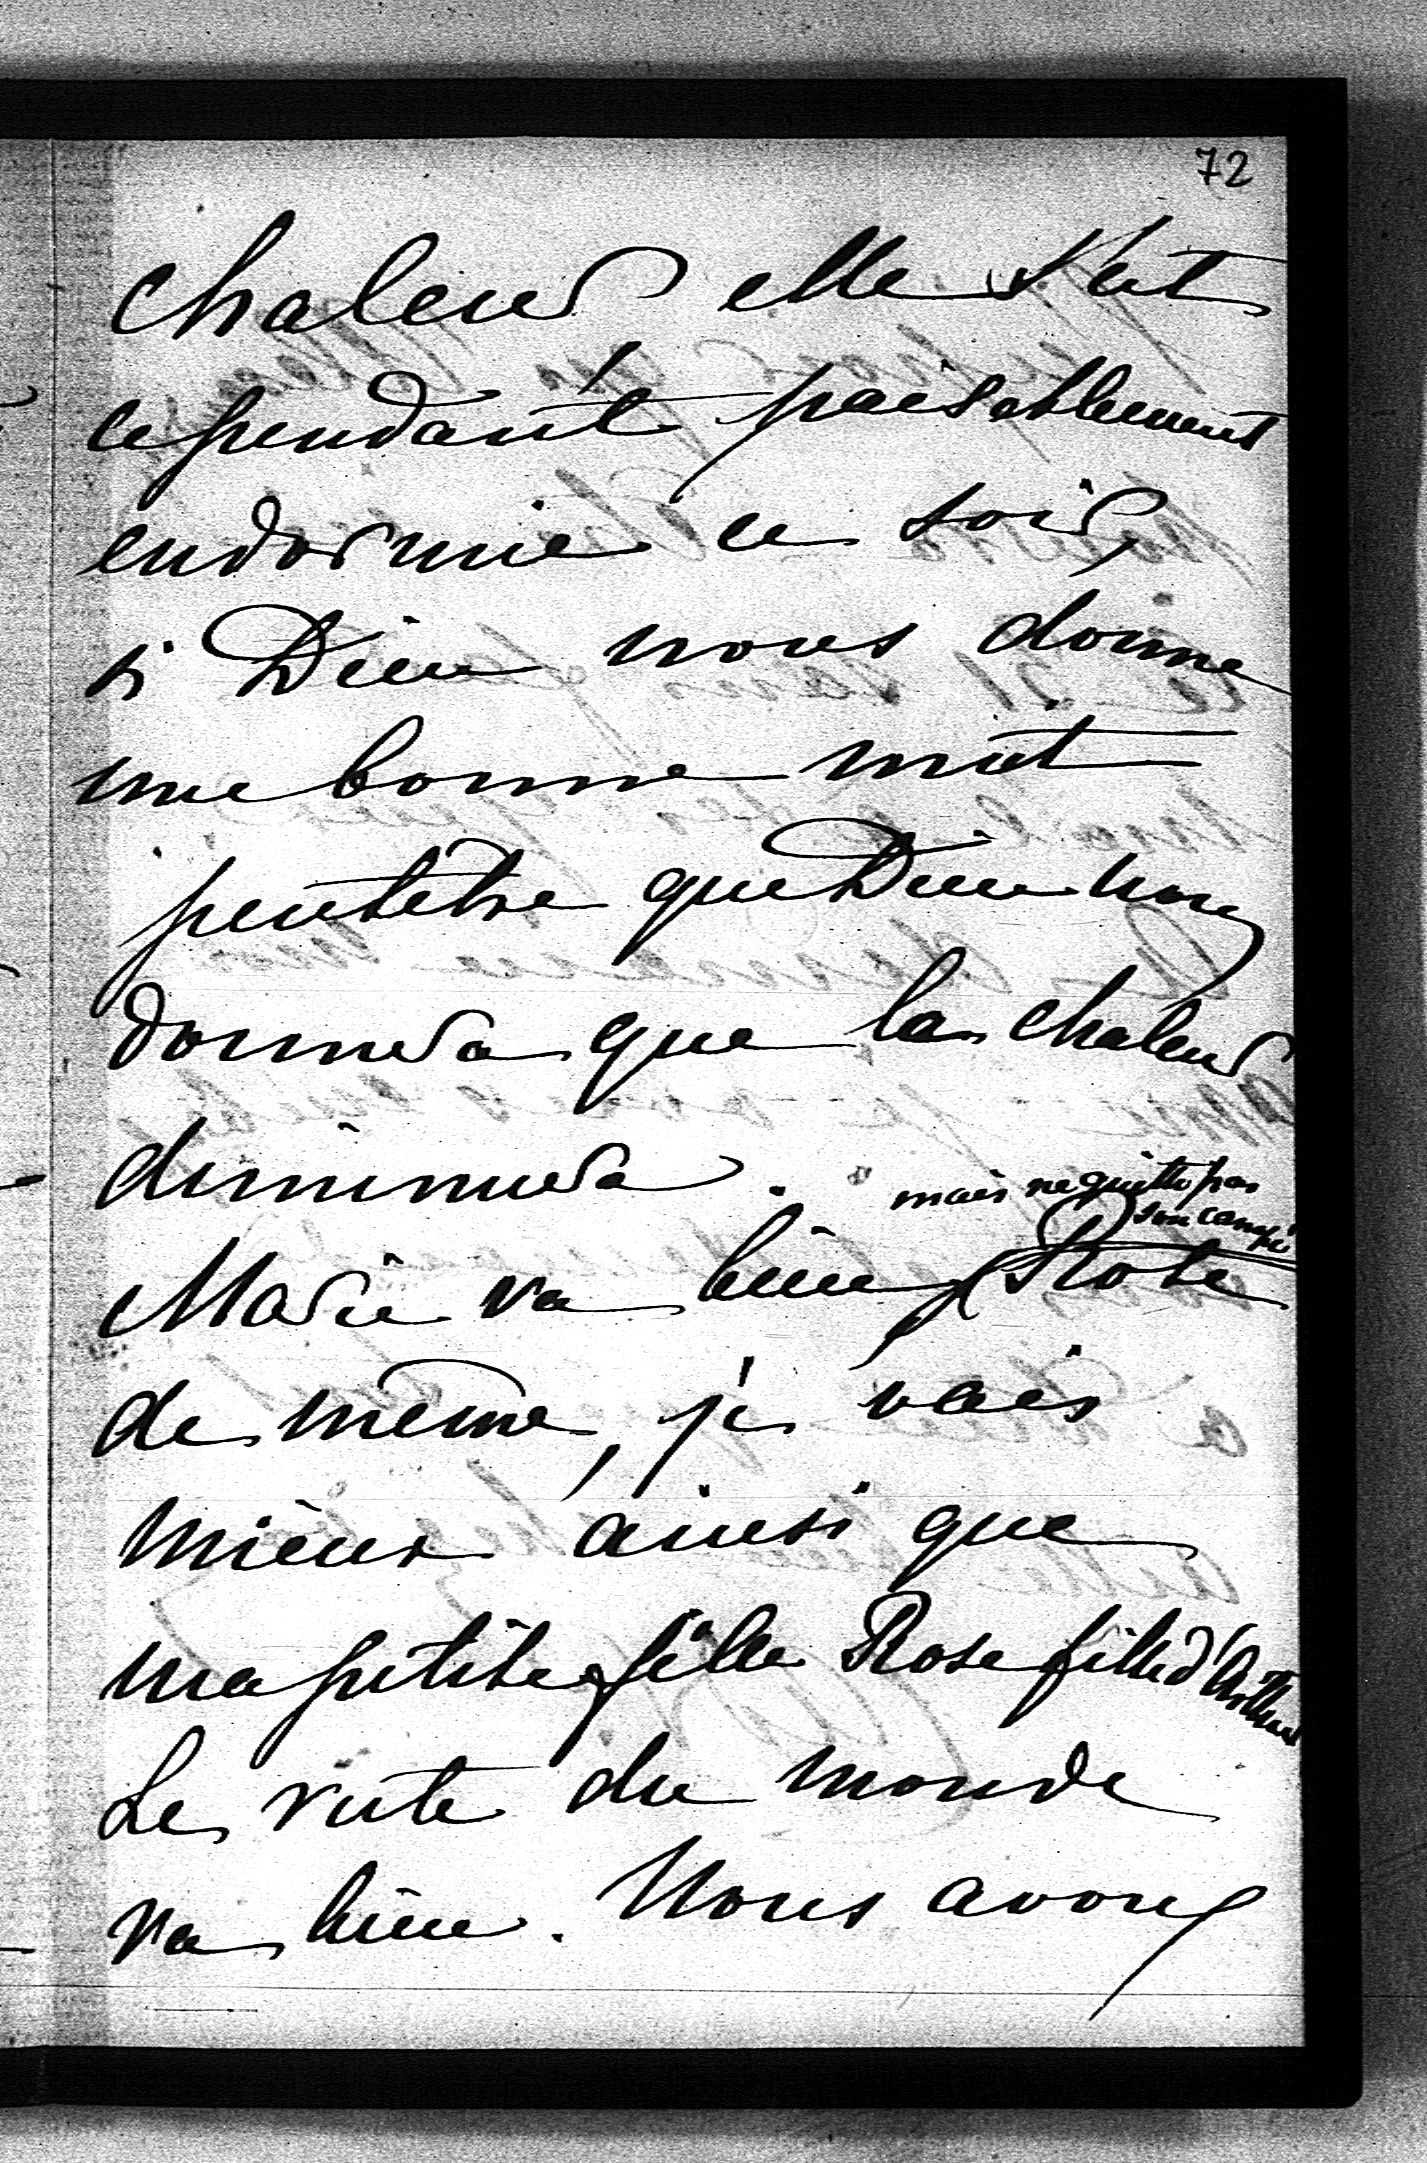 72
chaleur elle s'est
cependant paisiblement
endormie ce soir,
si Dieu nous donne
une bonne nuit
peutêtre que Dieu nous
donnera que la chaleur
diminuera.
mais ne quitte pas
son canapé
Marie va bien, Rose
de même, je vais
mieux ainsi que
ma petite fille Rose fille d'Arthur
Le reste du monde
va bien. Nous avons